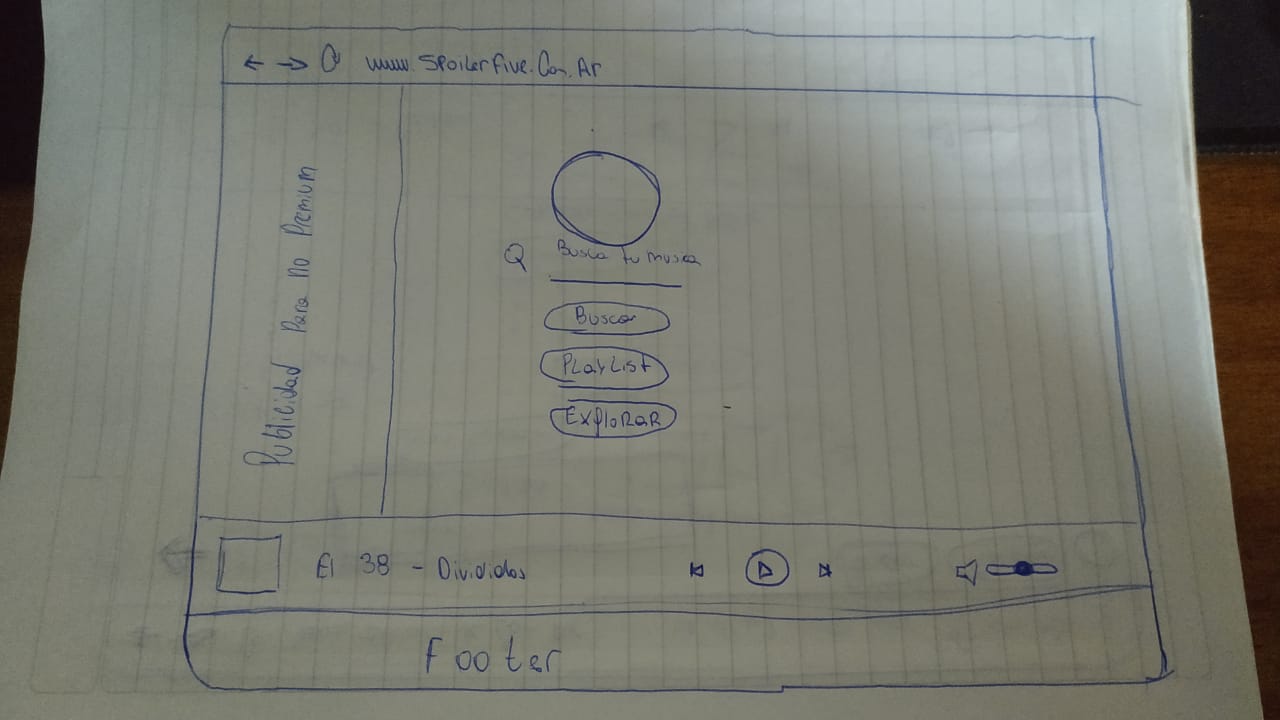 www.SpoilerFive.Com.Ar
Publicidad Para no Premium
Busca tu musica
Buscar
PlayList
ExploRaR
El 38 - Divididos
Footer